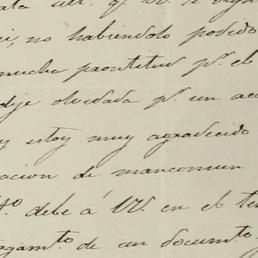 i, no habiéndolo podido
mucha prontitud p.r el
dje olvidada p.r un ac
y estoy muy agradecido
acion de mancomun
to debe á VV. en el te
rgam.to de un docum.to